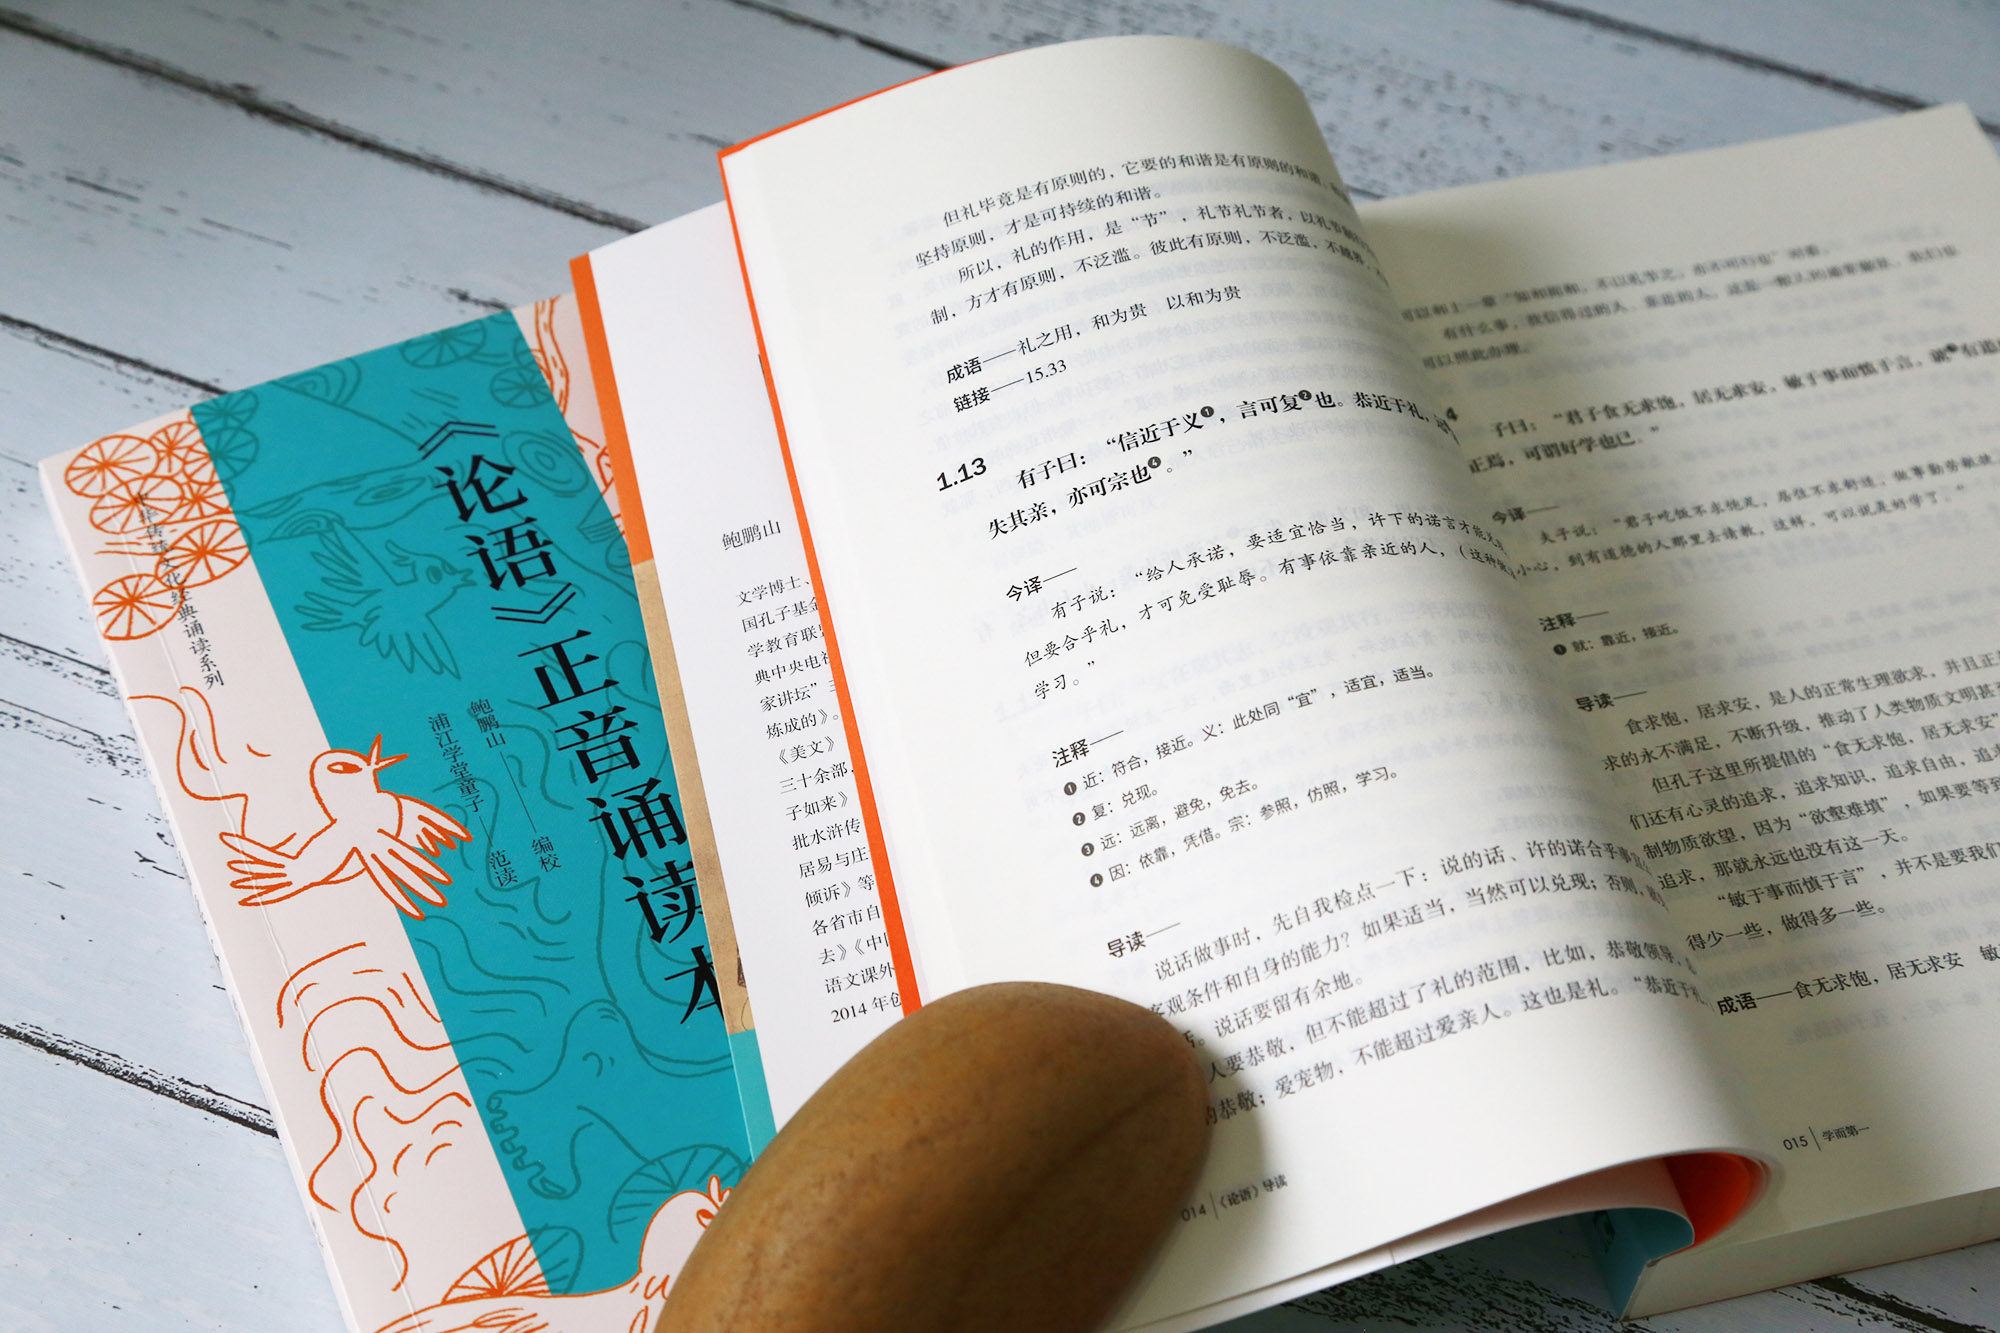 中华传统文化经典诵读系列
《论语》正音诵读本
鲍鹏山——编校
浦江学堂童子——范读
鲍鹏山
文学博士、
国孔子基金
学教育联盟
典中央电视
家讲坛”三
炼成的》。
《美文》
三十余部，
子如来》
批水浒传
居易与庄
倾诉》等
各省市自
去》《中国
语文课外
2014 年创
但礼毕竟是有原则的，它要的和谐是有原则的和谐，
坚持原则，才是可持续的和谐。
所以，礼的作用，是“节”，礼节礼节者，以礼节制
制，方才有原则，不泛滥。彼此有原则，不泛滥，不越界，
成语——礼之用，和为贵 以和为贵
链接——15.33
1.13 有子曰：“信近于义❶，言可复❷也。恭近于礼，远
失其亲，亦可宗也❹。”
今译——
有子说：“给人承诺，要适宜恰当，许下的诺言才能兑现
但要合乎礼，才可免受耻辱。有事依靠亲近的人，（这种做
学习。”
注释——
❶ 近：符合，接近。义：此处同“宜”，适宜，适当。
❷ 复：兑现。
❸ 远：远离，避免，免去。
❹ 因：依靠，凭借。宗：参照，仿照，学习。
导读——
说话做事时，先自我检点一下：说的话、许的诺合乎事宜
客观条件和自身的能力？如果适当，当然可以兑现；否则，
话。说话要留有余地。
人要恭敬，但不能超过了礼的范围，比如，恭敬领导，
的恭敬；爱宠物，不能超过爱亲人。这也是礼。“恭近于礼，
014 《论语》导读
可以和上一章“知和而和，不以礼节之，亦不可行也”对看。
有什么事，找信得过的人、靠近的人，这是一般人的通常做法，我们也
可以照此办理。
4 子曰：“君子食无求饱，居无求安，敏于事而慎于言，就❶有道
正焉，可谓好学也已。”
今译——
夫子说：“君子吃饭不求饱足，居住不求舒适，做事勤劳敏捷，
小心，到有道德的人那里去请教，这样，可以说是好学了。”
注释——
❶ 就：靠近，接近。
导读——
食求饱，居求安，是人的正常生理欲求，并且正是
求的永不满足，不断升级，推动了人类物质文明甚至
但孔子这里所提倡的“食无求饱，居无求安”
们还有心灵的追求，追求知识，追求自由，追求
制物质欲望，因为“欲壑难填”，如果要等到
追求，那就永远也没有这一天。
“敏于事而慎于言”，并不是要我们
得少一些，做得多一些。
成语——食无求饱，居无求安 敏
015 学而第一